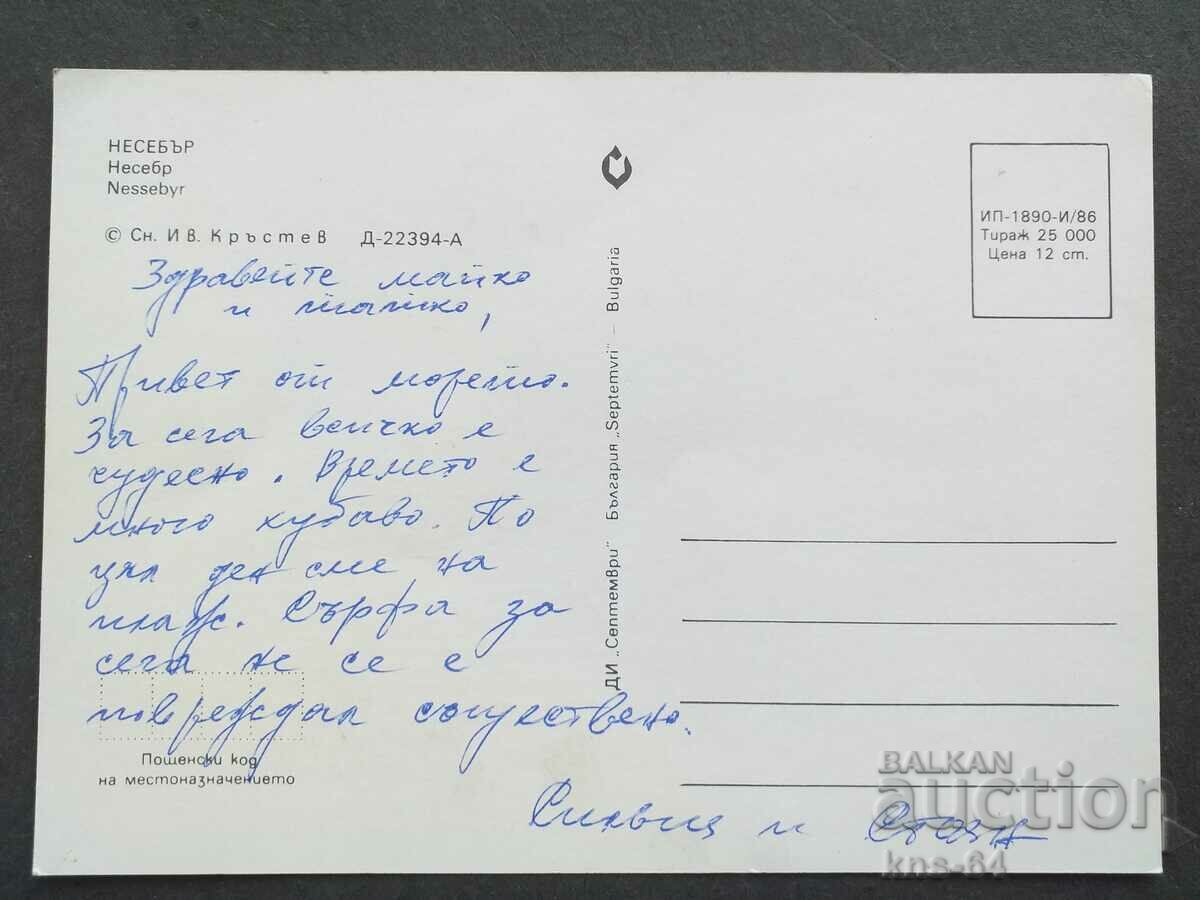 НЕСЕБЪР
Несебр
Nessebyr
© Сн. Ив. Кръстев Д-22394-А
Здравейте майко
и татко,
Привет от морето.
За сега всичко е
чудесно. Времето е
много хубаво. По
цял ден сме на
плаж. Сърфа за
сега не се е
повреждал съществено.
Силвия и Стоян
Пощенски код
на местоназначението
ДИ „Септември" България „Septemvri" – Bulgaria
ИП-1890-И/86
Тираж 25 000
Цена 12 ст.
BALKAN
auction
kns-64